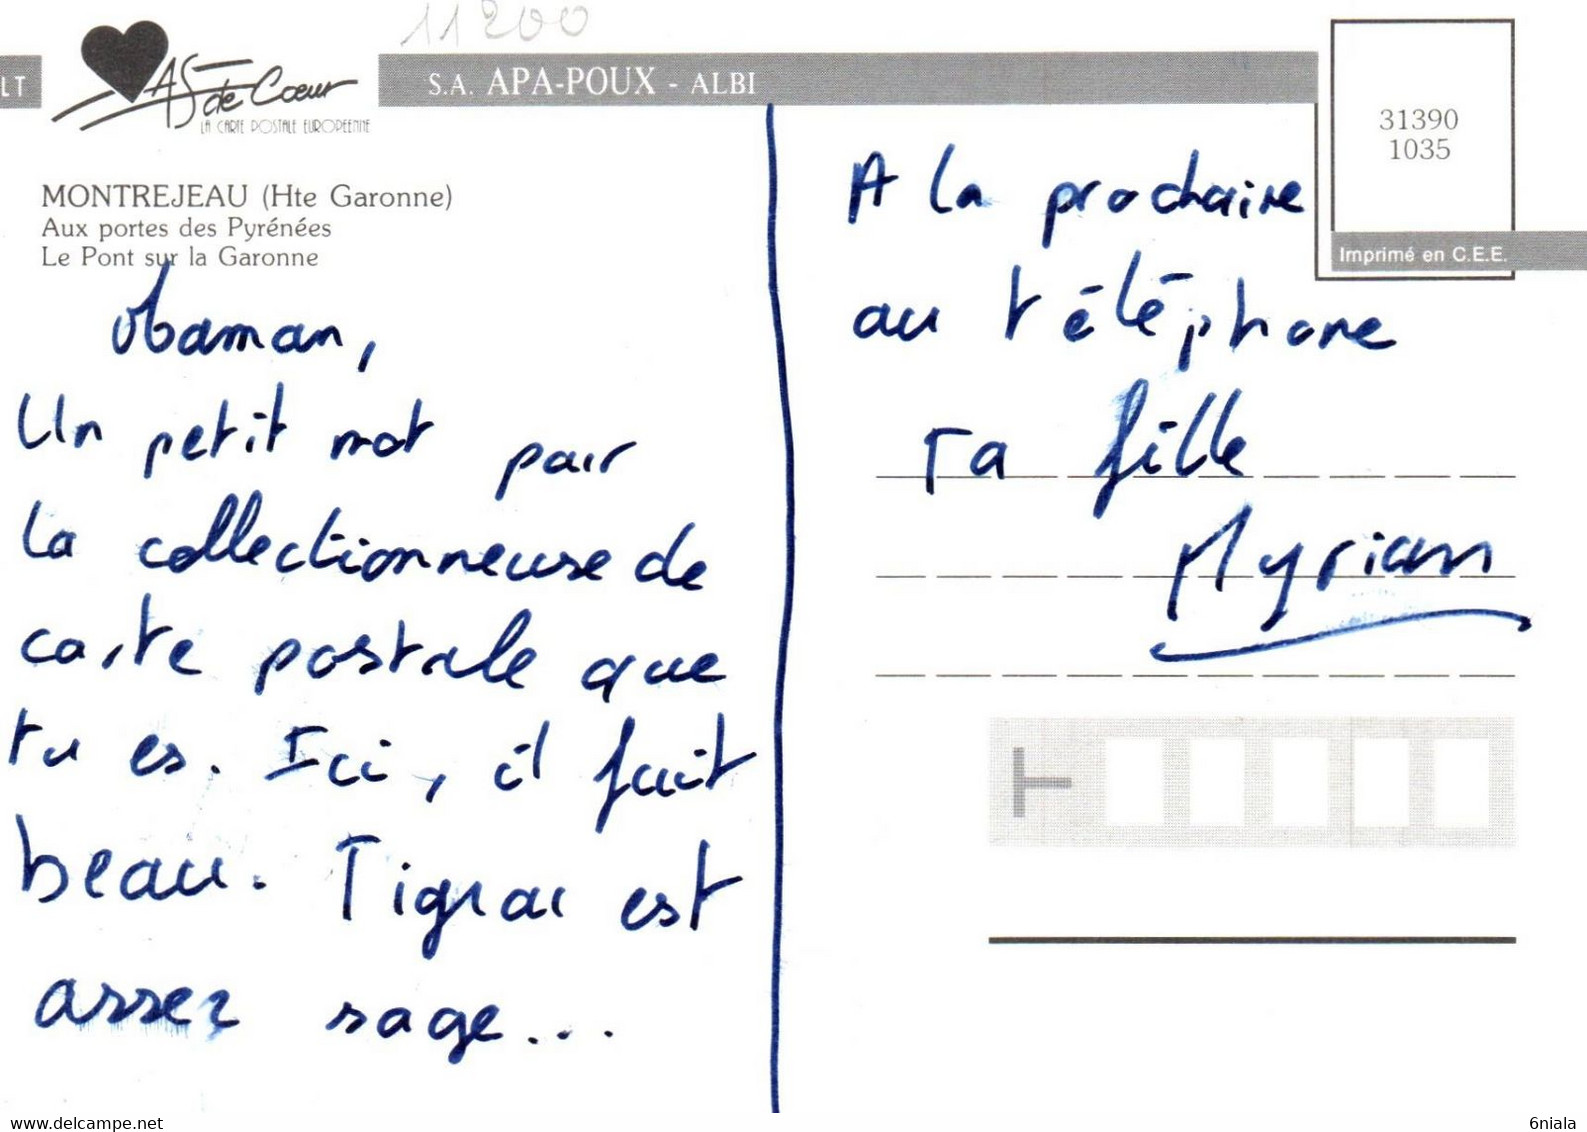 11200
LT
As de Coeur
LA CARTE POSTALE EUROPEENNE
S.A. APA-POUX - ALBI
31390
1035
Imprimé en C.E.E.
MONTREJEAU (Hte Garonne)
Aux portes des Pyrénées
Le Pont sur la Garonne
Maman,
Un petit mot pour
la collectionneuse de
carte postale que
tu es. Ici, il fait
beau. Tigrou est
assez sage...
A la prochaine
au téléphone
Ta fille
Myriam
T
delcampe.net
6niala